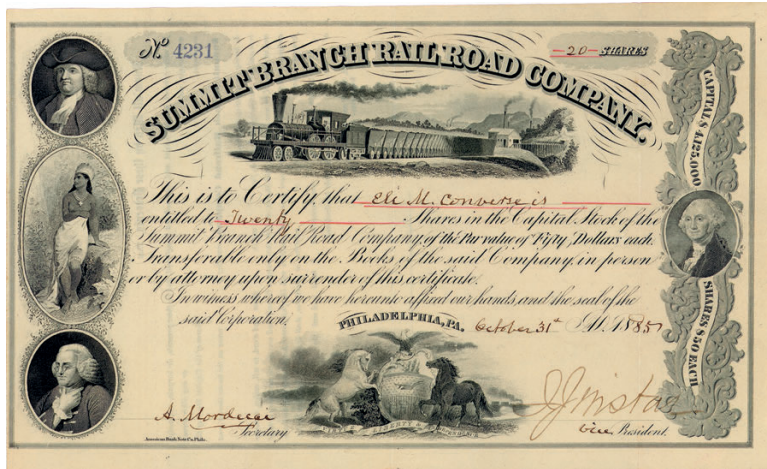 No 4231
-20- SHARES
SUMMIT BRANCH RAIL ROAD COMPANY.
CAPITAL $4,125,000
SHARES $50 EACH
This is to Certify, that Eli M. Converse is
entitled to Twenty Shares in the Capital Stock of the
Summit Branch Rail Road Company, of the Par value of Fifty Dollars each.
Transferable only on the Books of the said Company, in person
or by attorney upon surrender of this certificate.
In witness whereof we have hereunto affixed our hands, and the seal of the
said Corporation.
PHILADELPHIA, PA. October 31st A.D. 1885
A. Mordecai
Secretary
Vice President.
American Bank Note Co. Phila.